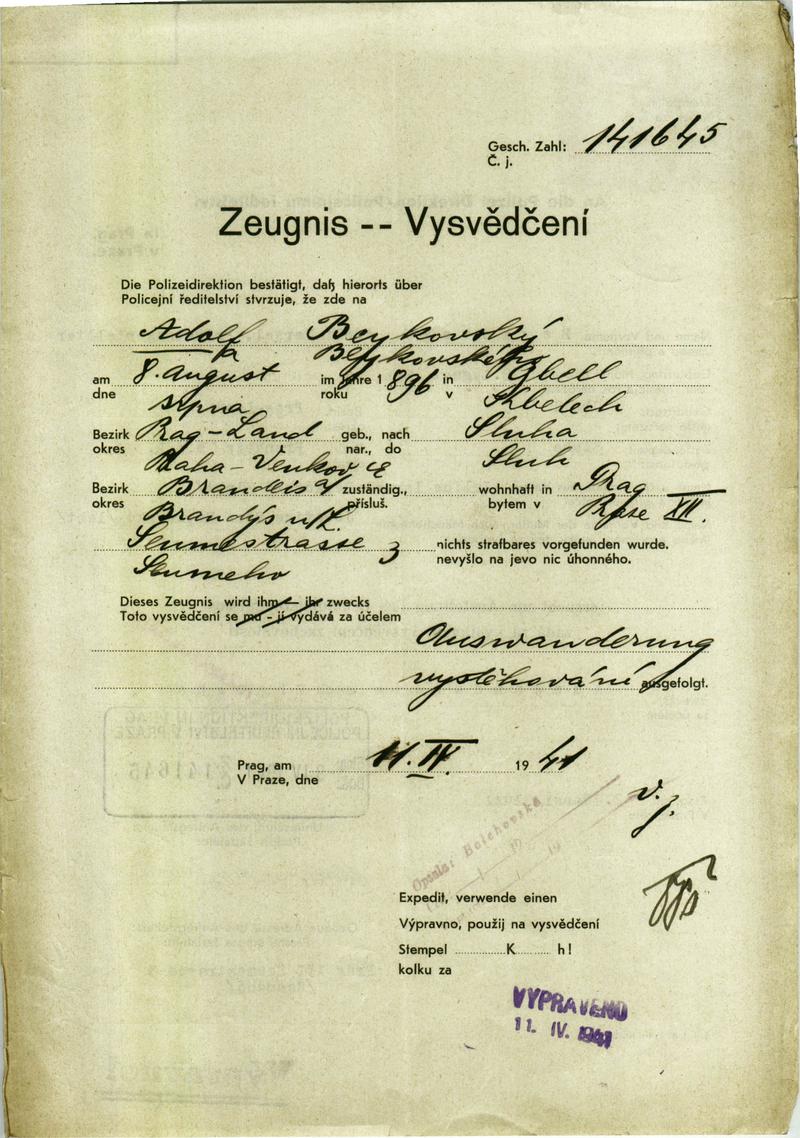 Gesch. Zahl: 141645
Č. j.
Zeugnis -- Vysvědčení
Die Polizeidirektion bestätigt, daß hierorts über
Policejní ředitelství stvrzuje, že zde na
Adolf Beykovský
a Beykovského
am 8. august im Jahre 1 896 in Gbell
dne srpna roku v Kbelech
Bezirk Prag-Land geb., nach Sluha
okres Praha-Venkov nar., do Sluh
Bezirk Brandeis a/ zuständig., wohnhaft in Prag
okres Brandýs n/L. přísluš. bytem v Praze XII.
Seumestrasse 3 nichts strafbares vorgefunden wurde.
Seumeho nevyšlo na jevo nic úhonného.
Dieses Zeugnis wird ihm - ihr zwecks
Toto vysvědčení se mu - jí vydává za účelem
Auswanderung
vystěhování ausgefolgt.
Prag, am 11. IV. 19 41
V Praze, dne
V. z.
Opsala: Bolchovská
Expedit, verwende einen
Výpravno, použij na vysvědčení
Stempel K h!
kolku za
VYPRAVENO
11. IV. 1941